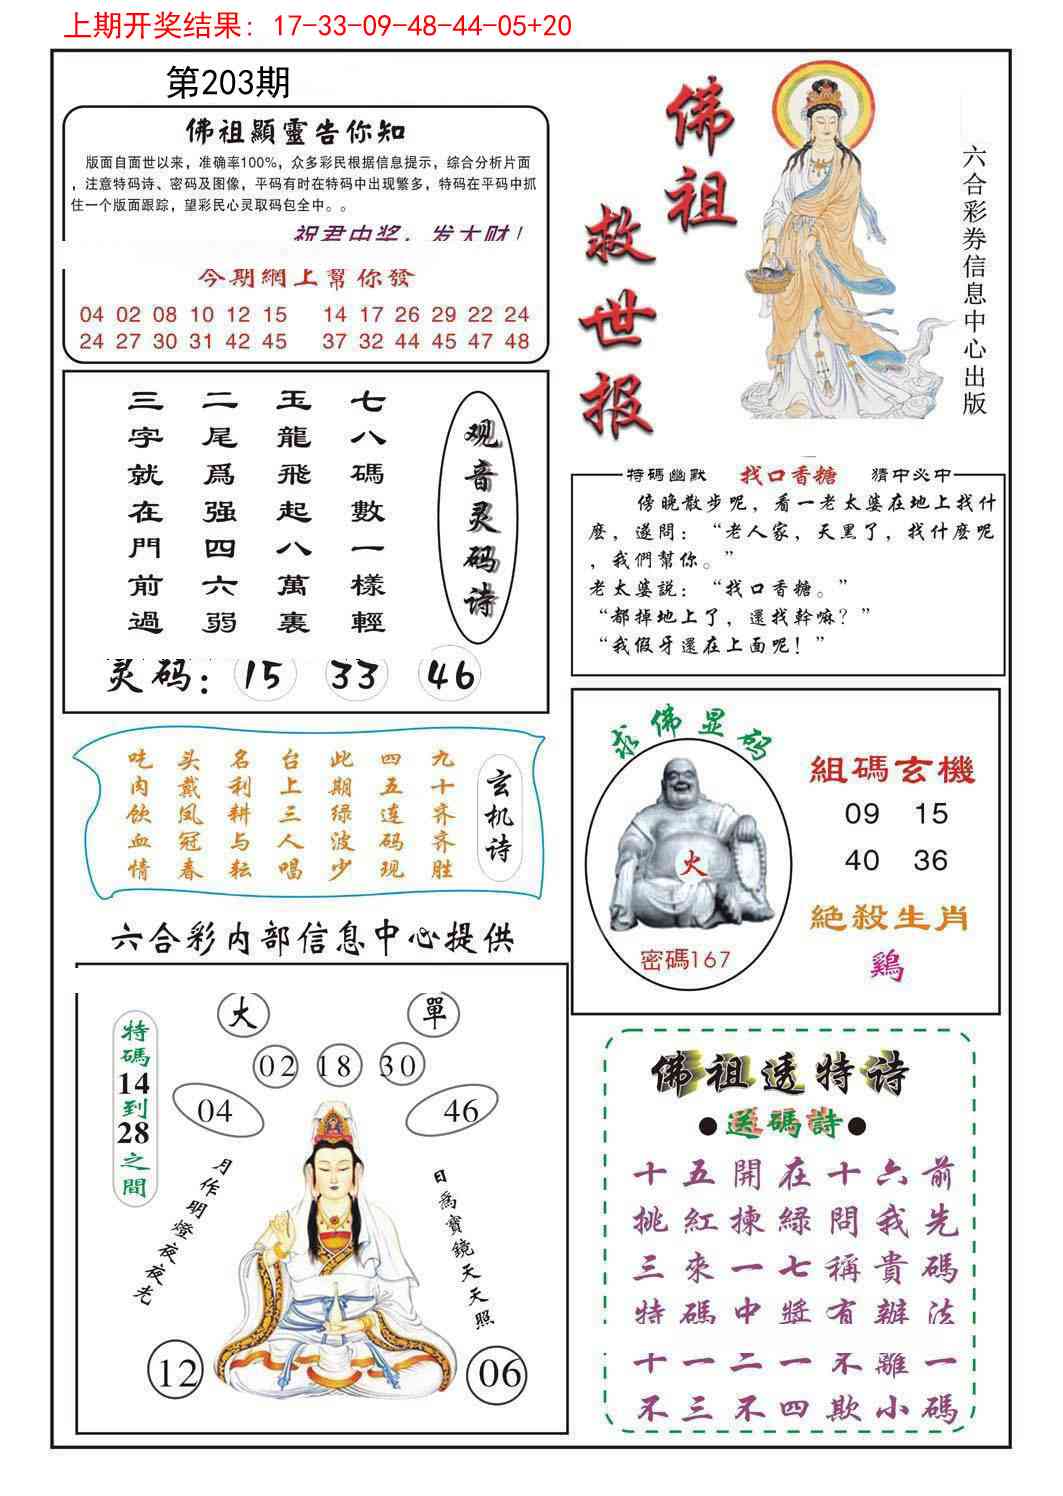 上期开奖结果：17-33-09-48-44-05+20
第203期
佛祖顯靈告你知
版面自面世以来，准确率100%，众多彩民根据信息提示，综合分析片面
，注意特码诗、密码及图像，平码有时在特码中出现繁多，特码在平码中抓
住一个版面跟踪，望彩民心灵取码包全中。。
祝君中奖，发大财！
今期網上幫你發
04 02 08 10 12 15 14 17 26 29 22 24
24 27 30 31 42 45 37 32 44 45 47 48
佛祖
救世报
六合彩券信息中心出版
观音灵码诗
七八碼數一樣輕
玉龍飛起八萬裏
二尾爲强四六弱
三字就在門前過
灵码：15 33 46
特碼幽默 找口香糖 猜中必中
傍晚散步呢，看一老太婆在地上找什
麽，遂問：“老人家，天黑了，找什麽呢
，我們幫你。”
老太婆説：“找口香糖。”
“都掉地上了，還找幹嘛？”
“我假牙還在上面呢！”
玄机诗
九十齐齐胜
四五连码现
此期绿波少
台上三人唱
名利耕与耘
头戴凤冠春
吃肉饮血情
求佛显码
火
密碼167
組碼玄機
09 15
40 36
絶殺生肖
鷄
六合彩内部信息中心提供
大 單
02 18 30
04 46
特碼14到28之間
月作明燈夜夜光
日為寶鏡天天照
12 06
佛祖透特诗
●送碼詩●
十五開在十六前
挑紅揀綠問我先
三來一七稱貴碼
特碼中獎有辦法
十一二一不離一
不三不四欺小碼